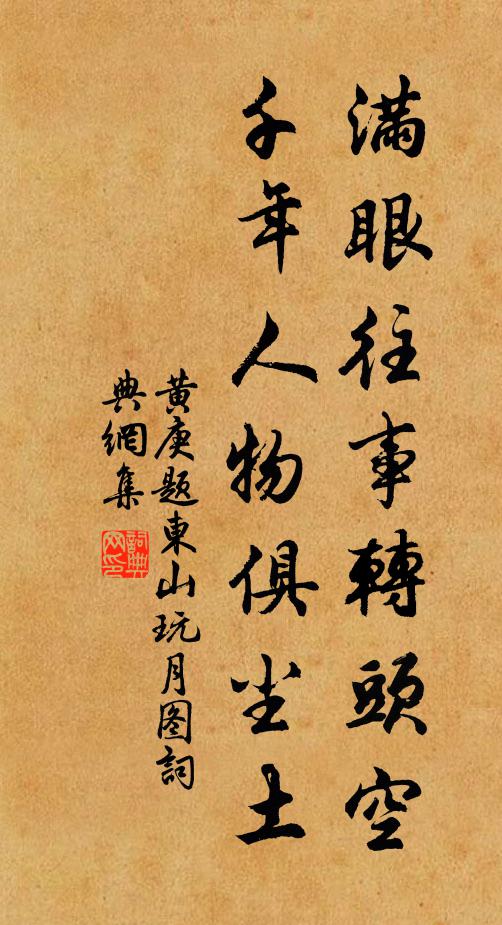 滿眼往事轉頭空
千年人物俱尘土
黄庚題東山玩月图詞
典網集
詞典网印